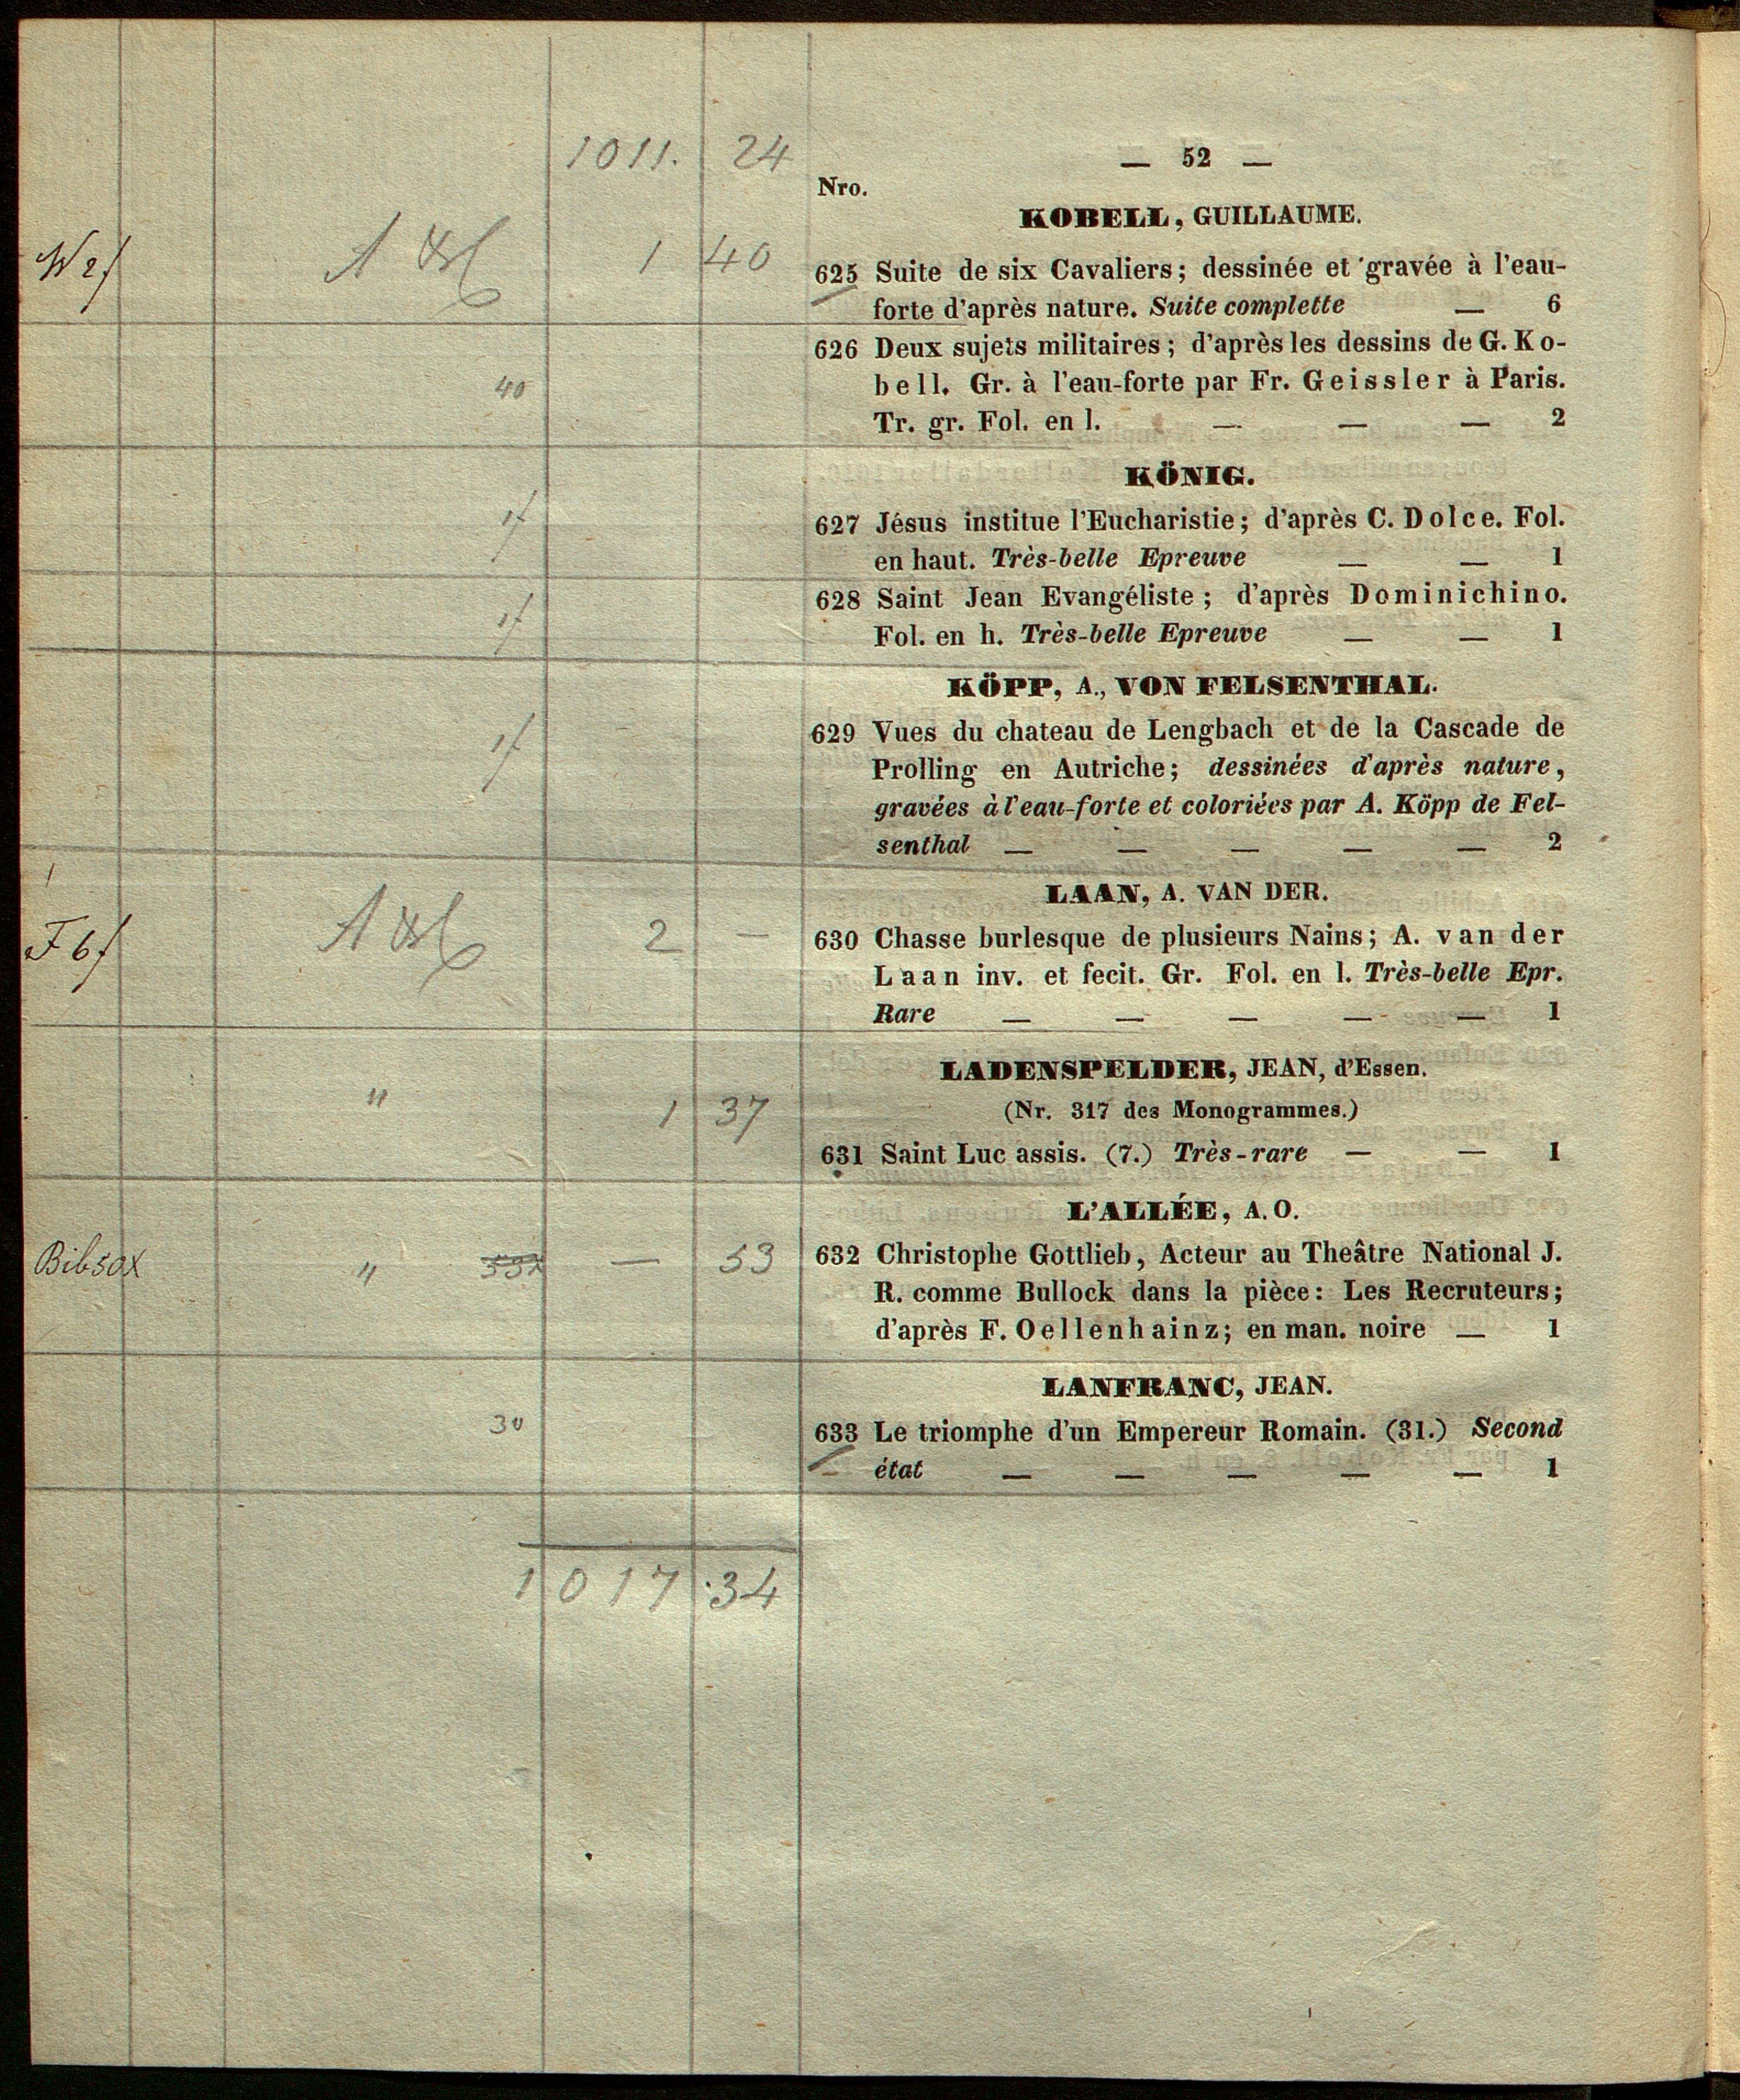 1011. 24
— 52 —
Nro.
KOBELL, GUILLAUME.
W 2f 1 40
625 Suite de six Cavaliers; dessinée et gravée à l'eau-
forte d'après nature. Suite complette — 6
40
626 Deux sujets militaires; d'après les dessins de G. Ko-
bell. Gr. à l'eau-forte par Fr. Geissler à Paris.
Tr. gr. Fol. en l. — — — 2
KÖNIG.
1f
627 Jésus institue l'Eucharistie; d'après C. Dolce. Fol.
en haut. Très-belle Epreuve — — 1
1f
628 Saint Jean Evangéliste; d'après Dominichino.
Fol. en h. Très-belle Epreuve — — 1
KÖPP, A., VON FELSENTHAL.
1f
629 Vues du chateau de Lengbach et de la Cascade de
Prolling en Autriche; dessinées d'après nature,
gravées à l'eau-forte et coloriées par A. Köpp de Fel-
senthal — — — — — 2
LAAN, A. VAN DER.
F 6f 2 —
630 Chasse burlesque de plusieurs Nains; A. van der
Laan inv. et fecit. Gr. Fol. en l. Très-belle Epr.
Rare — — — — — 1
LADENSPELDER, JEAN, d'Essen.
(Nr. 317 des Monogrammes.)
" 1 37
631 Saint Luc assis. (7.) Très-rare — — 1
L'ALLÉE, A. O.
" — 53
632 Christophe Gottlieb, Acteur au Theâtre National J.
R. comme Bullock dans la pièce: Les Recruteurs;
d'après F. Oellenhainz; en man. noire — 1
LANFRANC, JEAN.
30
633 Le triomphe d'un Empereur Romain. (31.) Second
état — — — — — 1
1017.34